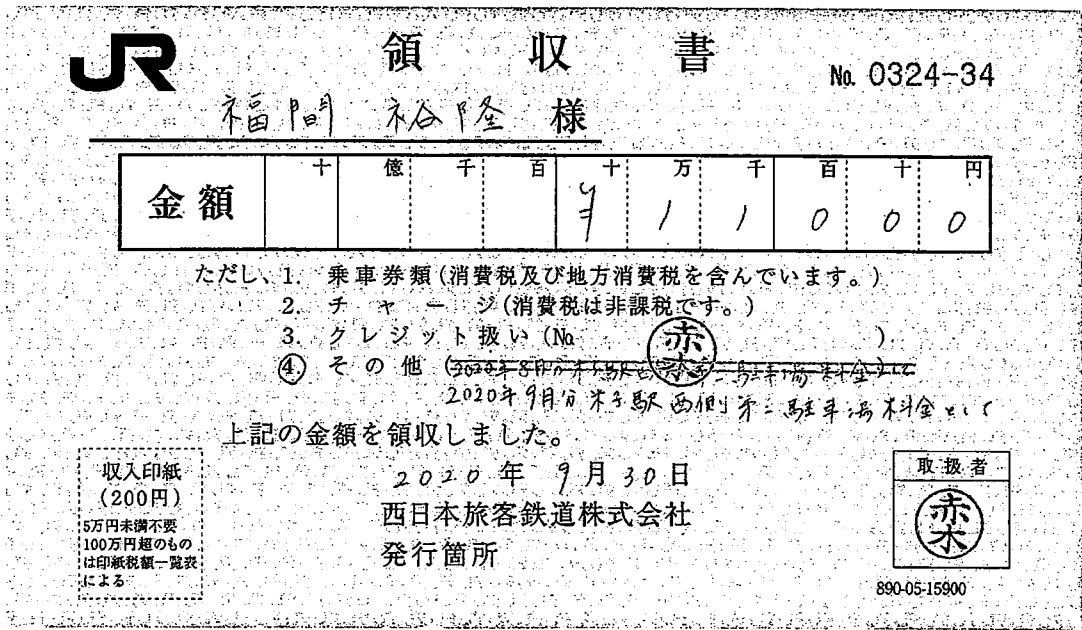 JR
領収書
No. 0324-34
福間 裕隆 様
金額 十 億 千 百 十 万 千 百 十 円
¥ 1 1 0 0 0
ただし、1. 乗車券類(消費税及び地方消費税を含んでいます。)
2. チャージ(消費税は非課税です。)
3. クレジット扱い(No. )
赤木
④ その他 (2020年8月分米子駅西側第二駐車場料金として
2020年9月分米子駅西側第二駐車場料金として
上記の金額を領収しました。
2020年 9月30日
西日本旅客鉄道株式会社
発行箇所
収入印紙
(200円)
5万円未満不要
100万円超のもの
は印紙税額一覧表
による
取扱者
赤木
890-05-15900